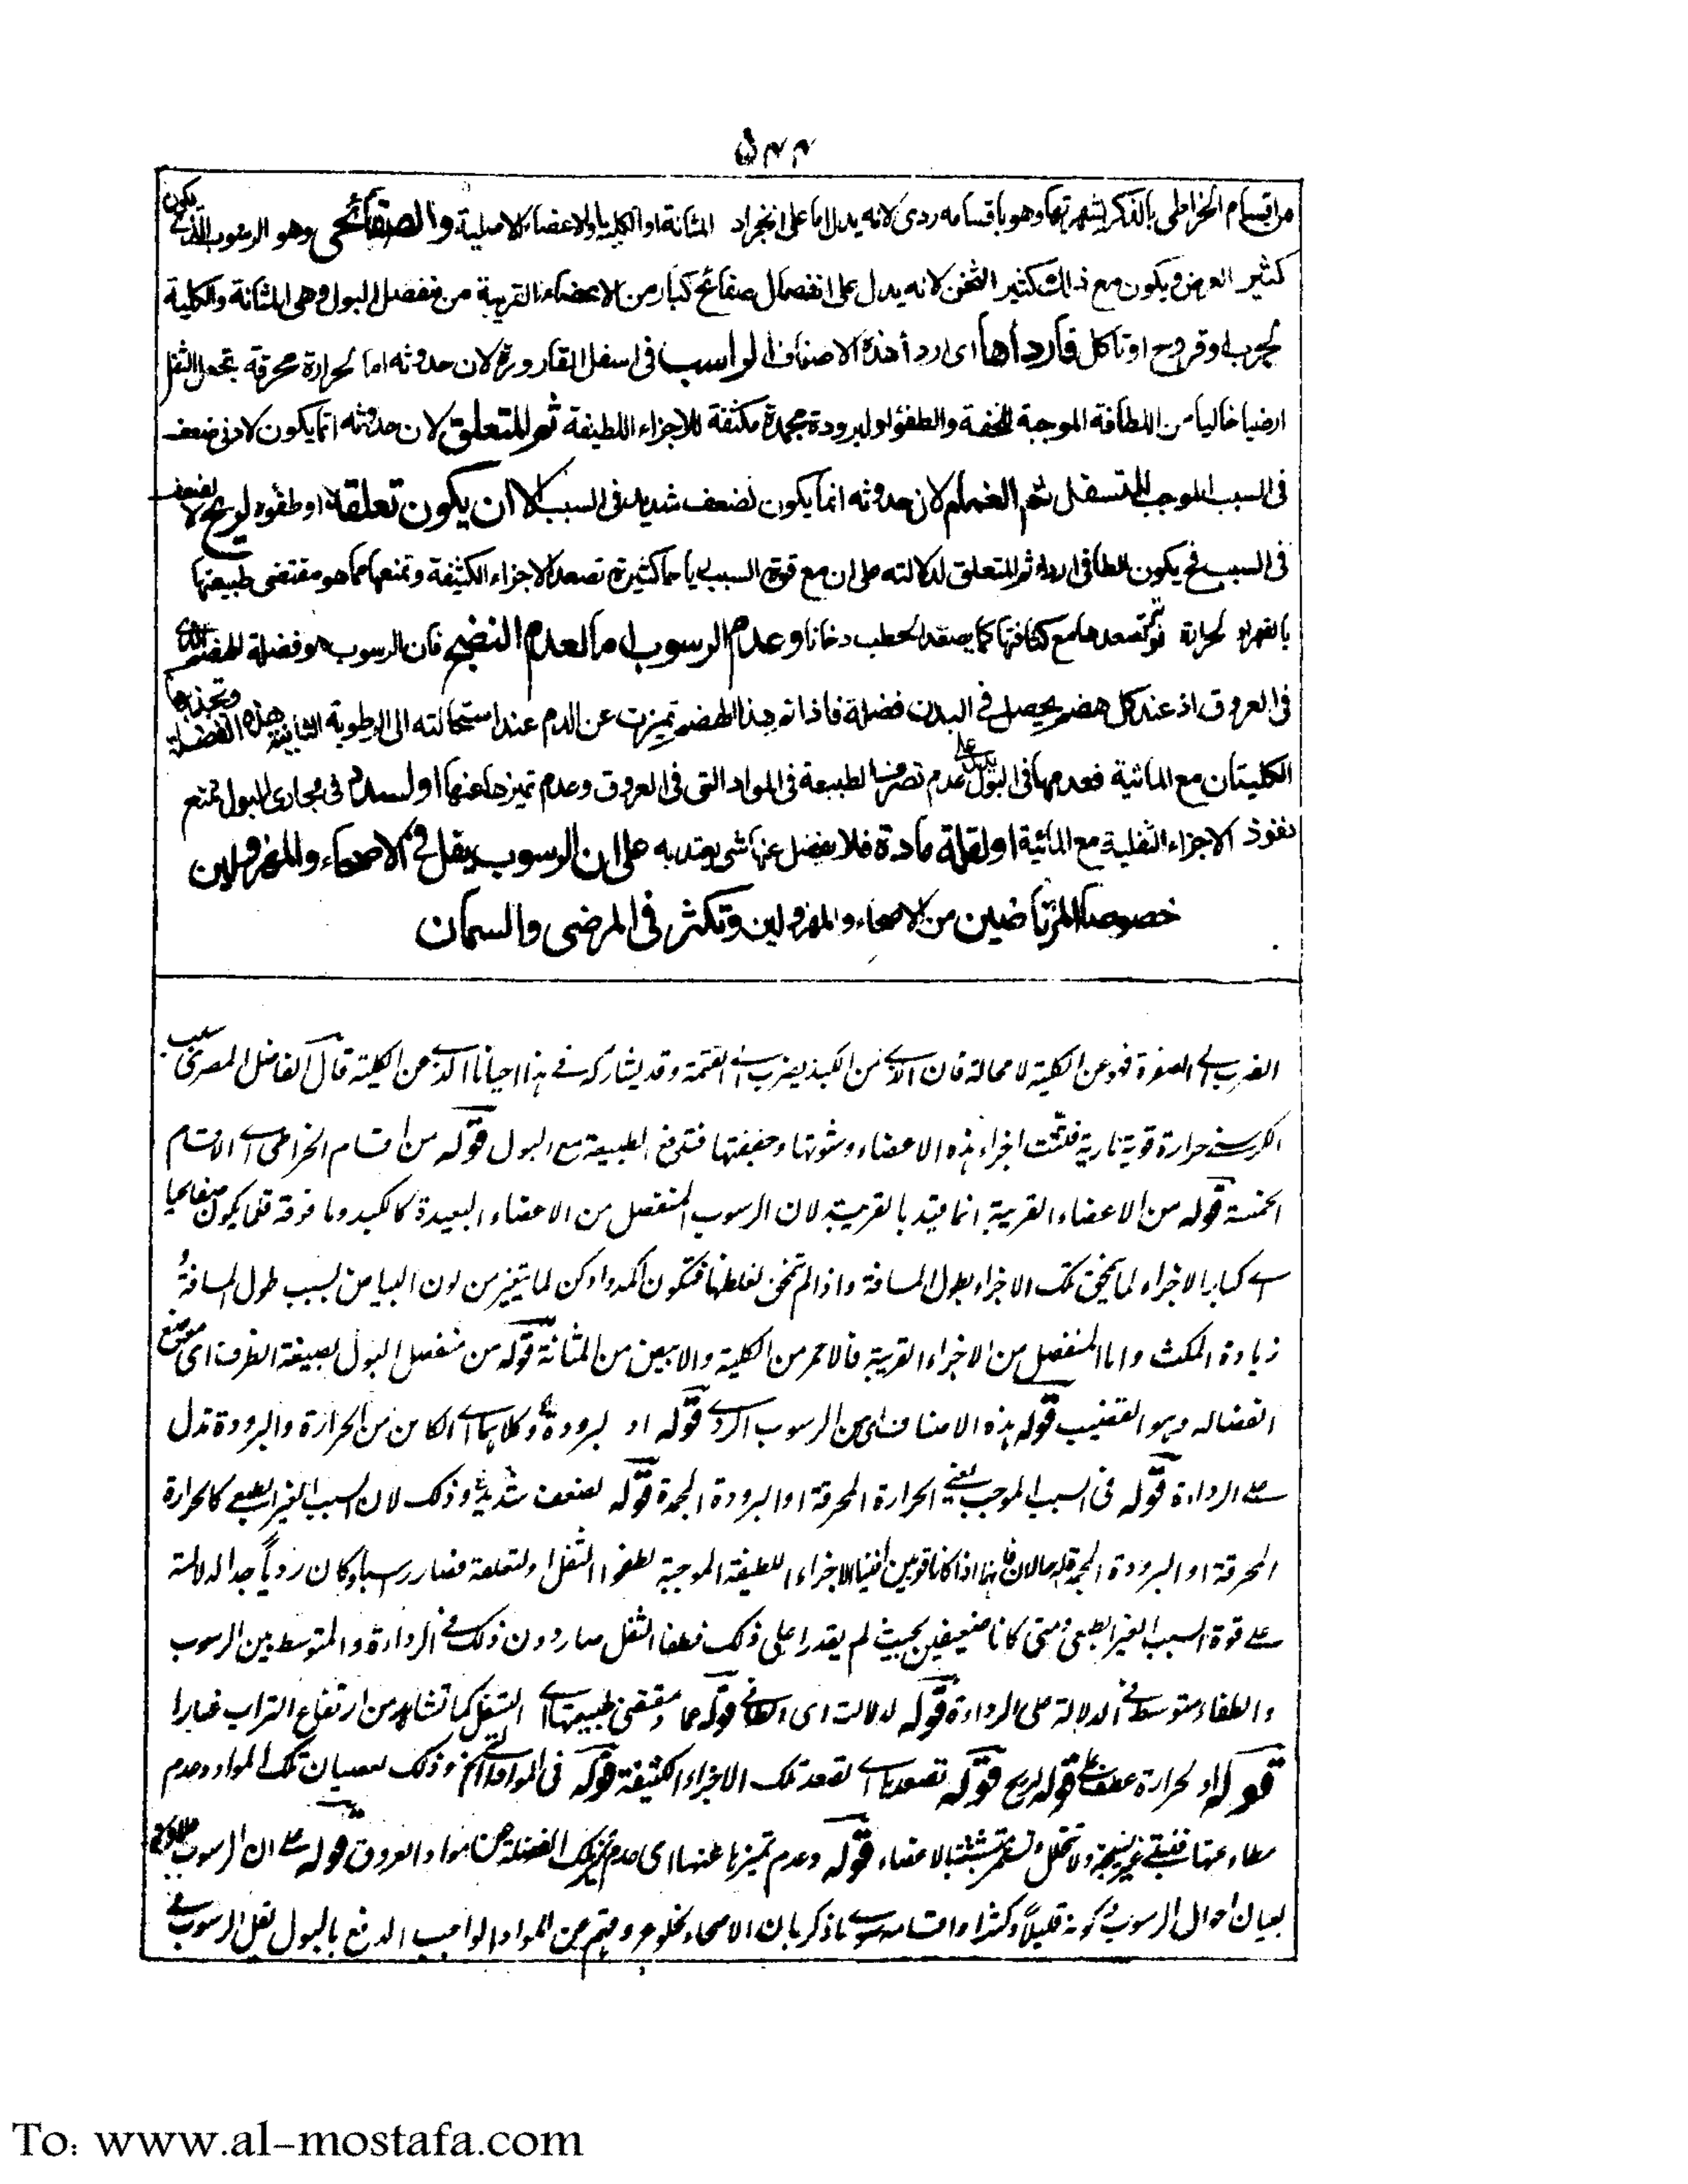 ۵۴۴
من اقسام الخراطى بالذكر لشهرتها وهو باقسامه ردى لانه يدل اما على انجراد المثانة او الكلية او الاعضاء الاصلية والصفائحى وهو الرسوب الذى يكون
كثير العرض ويكون مع ذلك كثير الثخن لانه يدل على انفصال صفائح كبار من الاعضاء القريبة من منفصل البول وهى المثانة والكلية
لجرب او قروح او تاكل فاردأها اى اردأ هذه الاصناف الراسب فى اسفل القارورة لان حدوثه اما لحرارة محرقة تجعل الثفل
ارضيا خاليا من اللطافة الموجبة للخفة والطفو او لبرودة مجمدة مكثفة للاجزاء اللطيفة ثم المتعلق لان حدوثه انما يكون لادنى ضعف
فى السبب الموجب للتسفل ثم الغمام لان حدوثه انما يكون لضعف شديد فى السبب الا ان يكون تعلقه او طفوه لريح لا لضعف
فى السبب فح يكون الطافى اردء ثم المتعلق لدلالته على ان مع قوة السبب رياحا كثيرة تصعد الاجزاء الكثيفة وتمنعها عما هو مقتضى طبيعتها
بالقهر او لحرارة قوية تصعدها مع كثافتها كما يصعد الحطب دخانا وعدم الرسوب اما لعدم النضج فان الرسوب هو فضلة الهضم الذى
فى العروق اذ عند كل هضم يحصل فى البدن فضلة فاذا تم هذا الهضم تميزت عن الدم عند استحالته الى الرطوبة الثانية هذه الفضلة وتجذبها
الكليتان مع المائية فعدمها فى البول يدل على عدم تصرف الطبيعة فى المواد التى فى العروق وعدم تميزها عنها او لسدد فى مجارى البول تمنع
نفوذ الاجزاء الثفلية مع المائية او لقلة مادة فلا يفضل عنها شى يعتد به على ان الرسوب يقل فى الاصحاء والمهزولين
خصوصا المرتاضين من الاصحاء والمهزولين وتكثر فى المرضى والسمان
الضرب الى الصفرة فهو عن الكلية لا محالة فان الآتى من الكبد يضرب الى القتمة وقد يشاركه فى هذا احيانا الذى من الكلية قال الفاضل المصرى سبب
الكرسنى حرارة قوية نارية فتتت اجزاء هذه الاعضاء وشوتها وجففتها فتدفع الطبيعة مع البول قوله من اقسام الخراطى اى الاقسام
الخمسة قوله من الاعضاء القريبة انما قيد بالقريبة لان الرسوب المنفصل من الاعضاء البعيدة كالكبد وما فوقه قلما يكون صفائحيا
اى كبار الاجزاء لما تنحق تلك الاجزاء بطول المسافة واذا لم تنحق لغلظها فتكون اكمد وادكن لما يتغير من لون البياض بسبب طول المسافة و
زيادة المكث واما المنفصل من الاجزاء القريبة فالاحمر من الكلية والابيض من المثانة قوله من منفصل البول بصيغة الظرف اى موضع
انفصاله وهو القضيب قوله هذه الاصناف اى من الرسوب الردى قوله او لبرودة وكلاهما اى الكائن من الحرارة والبرودة تدل
على الرداءة قوله فى السبب الموجب يعنى الحرارة المحرقة او البرودة المجمدة قوله لضعف شديد وذلك لان السبب الغير الطبعى كالحرارة
المحرقة او البرودة المجمدة له حالان فانهما اذا كانا قويين افنيا الاجزاء اللطيفة الموجبة لطفو الثفل او لتعلقه فصار راسبا وكان رديا جدا لدلالته
على قوة السبب الغير الطبعى ومتى كانا ضعيفين بحيث لم يقدرا على ذلك فطفا الثفل صار دون ذلك فى الرداءة والمتوسط بين الرسوب
والطفاء متوسط فى الدلالة على الرداءة قوله لدلالته اى الطافى قوله عما هو مقتضى طبيعتها اى التسفل كما تشاهد من ارتفاع التراب غبارا
قوله او لحرارة عطف على قوله لريح قوله تصعدها اى تصعد تلك الاجزاء الكثيفة قوله فى المواد التى الخ وذلك لعصيان تلك المواد وعدم
عنها فبقى غير نضيجة ولا تتحلل متشبثة بالاعضاء قوله وعدم تميزها عنها اى عدم تميز تلك الفضلة عن مواد العروق قوله على ان الرسوب
بيان احوال الرسوب فى كونه قليلا وكثيرا واقسامه سوى ما ذكر بان الاصحاء لخلو عروقهم عن المواد الواجب الدفع بالبول يقل الرسوب فى
To: www.al-mostafa.com